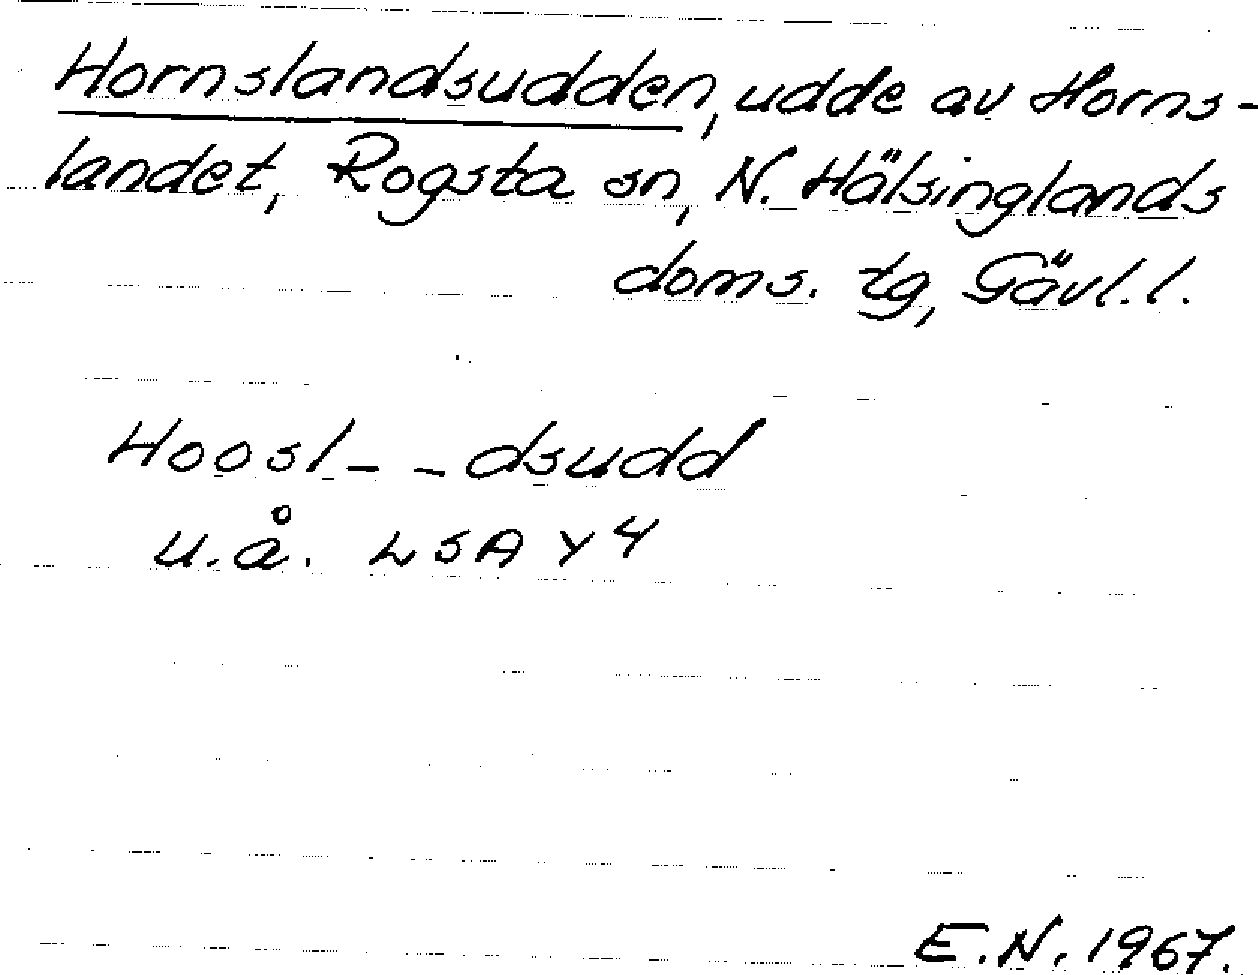 Hornslandsudden, udde av Horns-
landet, Rogsta sn, N. Hälsinglands
doms. tg, Gävl. l.
Hoosl - - dsudd
u.å. LSA Y 4
E.N. 1967.